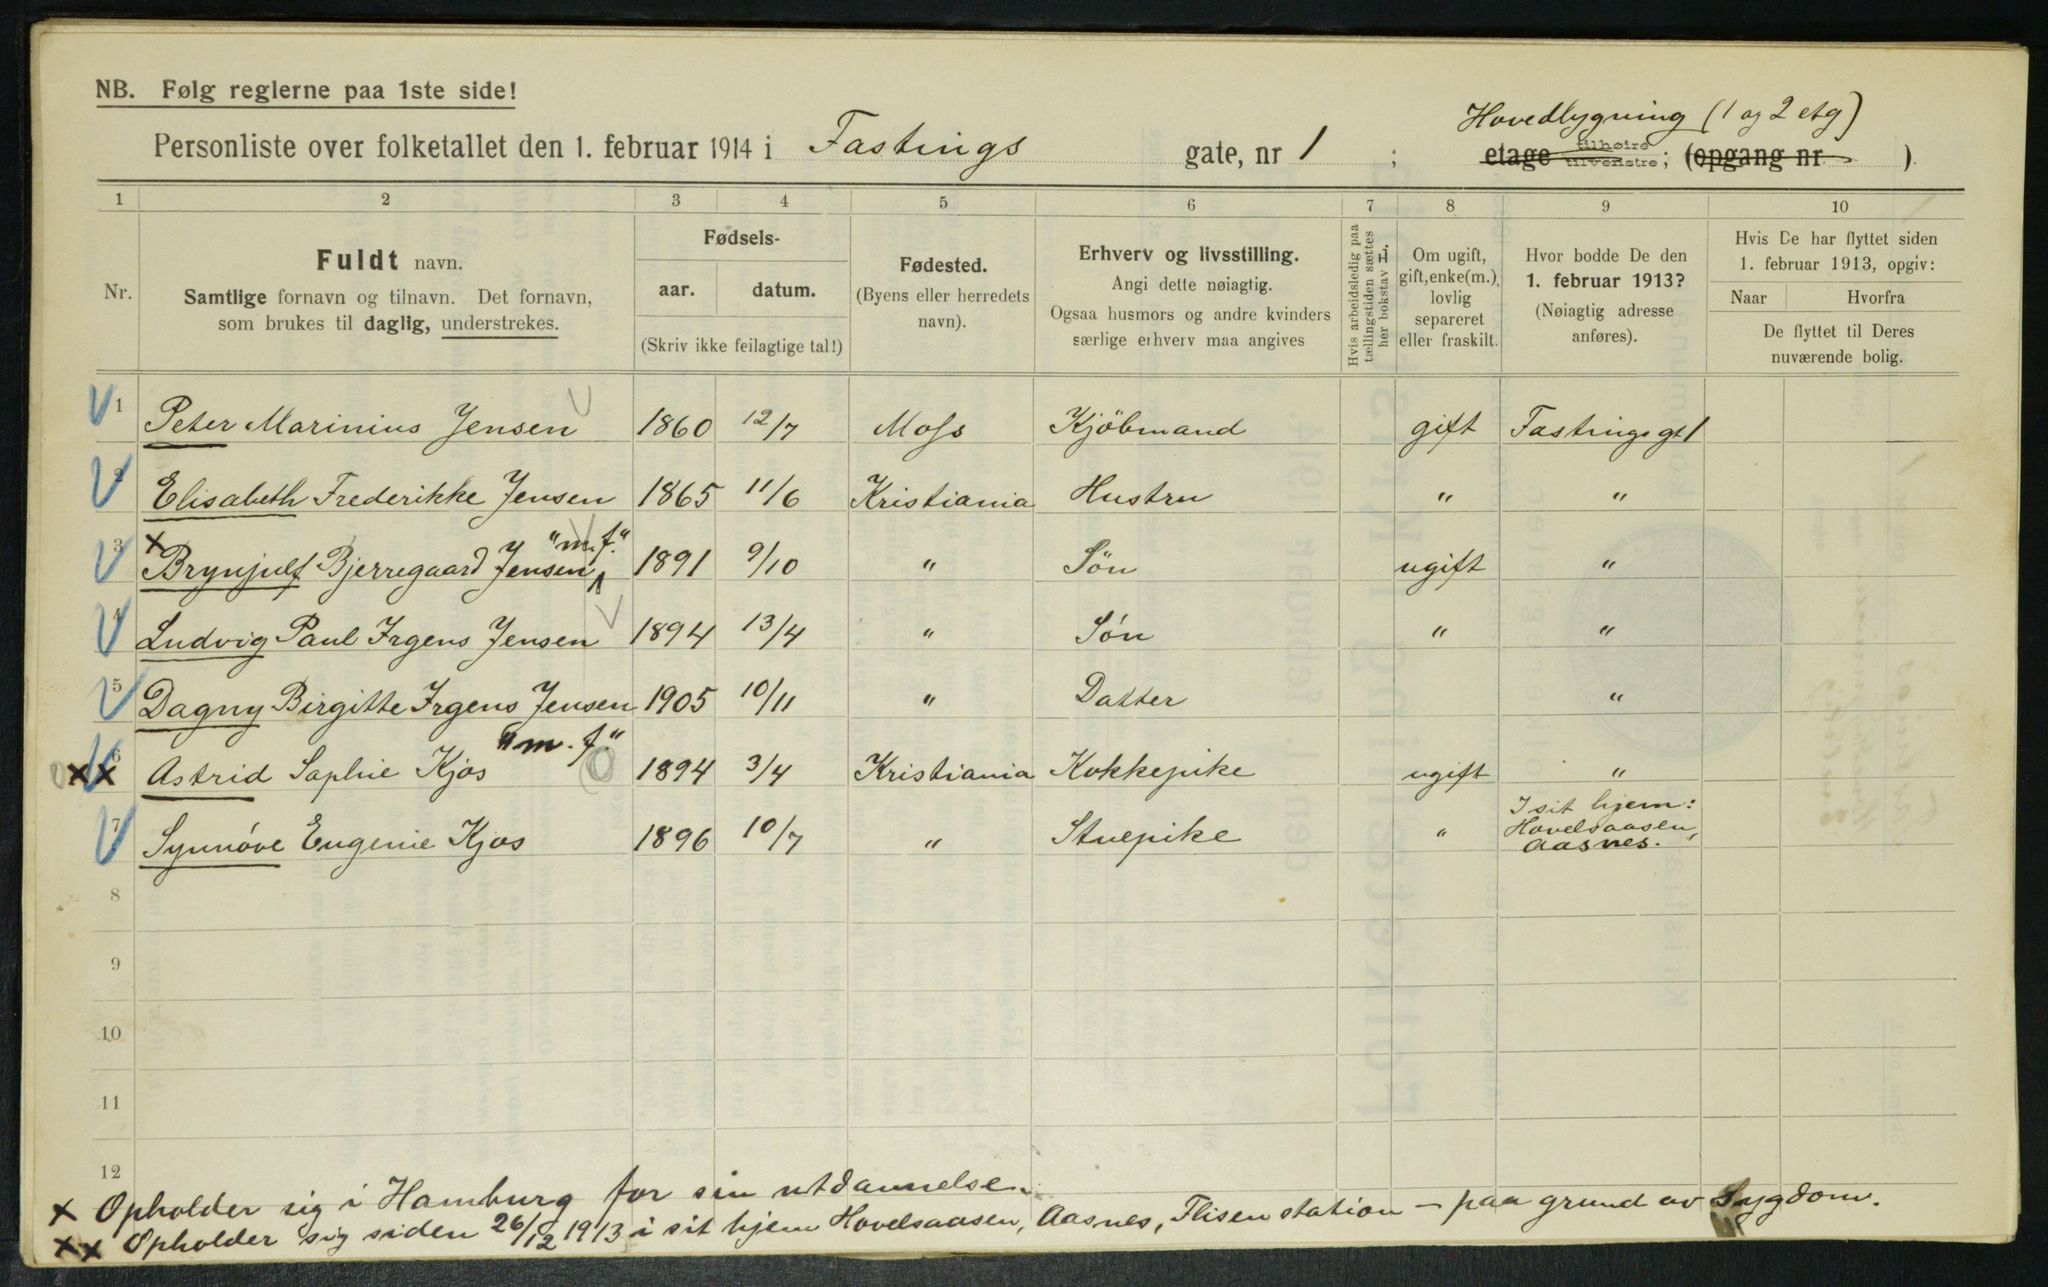 NB. Følg reglerne paa 1ste side!
Hovedbygning (1 og 2 etg)
Personliste over folketallet den 1. februar 1914 i Fastings gate, nr 1 ; etage tilhøire tilvenstre; (opgang nr )
1 2 3 4 5 6 7 8 9 10
Nr.
Fuldt navn.
Samtlige fornavn og tilnavn. Det fornavn,
som brukes til daglig, understrekes.
Fødsels-
aar. datum.
(Skriv ikke feilagtige tal!)
Fødested.
(Byens eller herredets
navn).
Erhverv og livsstilling.
Angi dette nøiagtig.
Ogsaa husmors og andre kvinders
særlige erhverv maa angives
Hvis arbeidsledig paa
tællingstiden sættes
her bokstav L.
Om ugift,
gift, enke(m.),
lovlig
separeret
eller fraskilt.
Hvor bodde De den
1. februar 1913?
(Nøiagtig adresse
anføres).
Hvis De har flyttet siden
1. februar 1913, opgiv:
Naar Hvorfra
De flyttet til Deres
nuværende bolig.
1 Peter Marinius Jensen 1860 12/7 Moss Kjöbmand gift Fastingsgt 1
2 Elisabeth Frederikke Jensen 1865 11/6 Kristiania Hustru " "
3 x Brynjulf Bjerregaard Jensen "m.f." 1891 9/10 " Sön ugift "
4 Ludvig Paul Irgens Jensen 1894 13/4 " Són " "
5 Dagny Birgitte Irgens Jensen 1905 10/11 " Datter "
6 xx Astrid Sophie Kjos "m.f." 1894 3/4 Kristiania Kokkepike ugift "
7 Synnóve Eugenie Kjos 1896 10/7 " Stuepike " I sit hjem:
Hovelsaasen,
Aasnes.
8
9
10
11
12
x Opholder sig i Hamburg for sin utdannelse.
xx Opholder sig siden 26/12 1913 i sit hjem Hovelsaasen, Aasnes, Flisen station – paa grund av Sygdom.